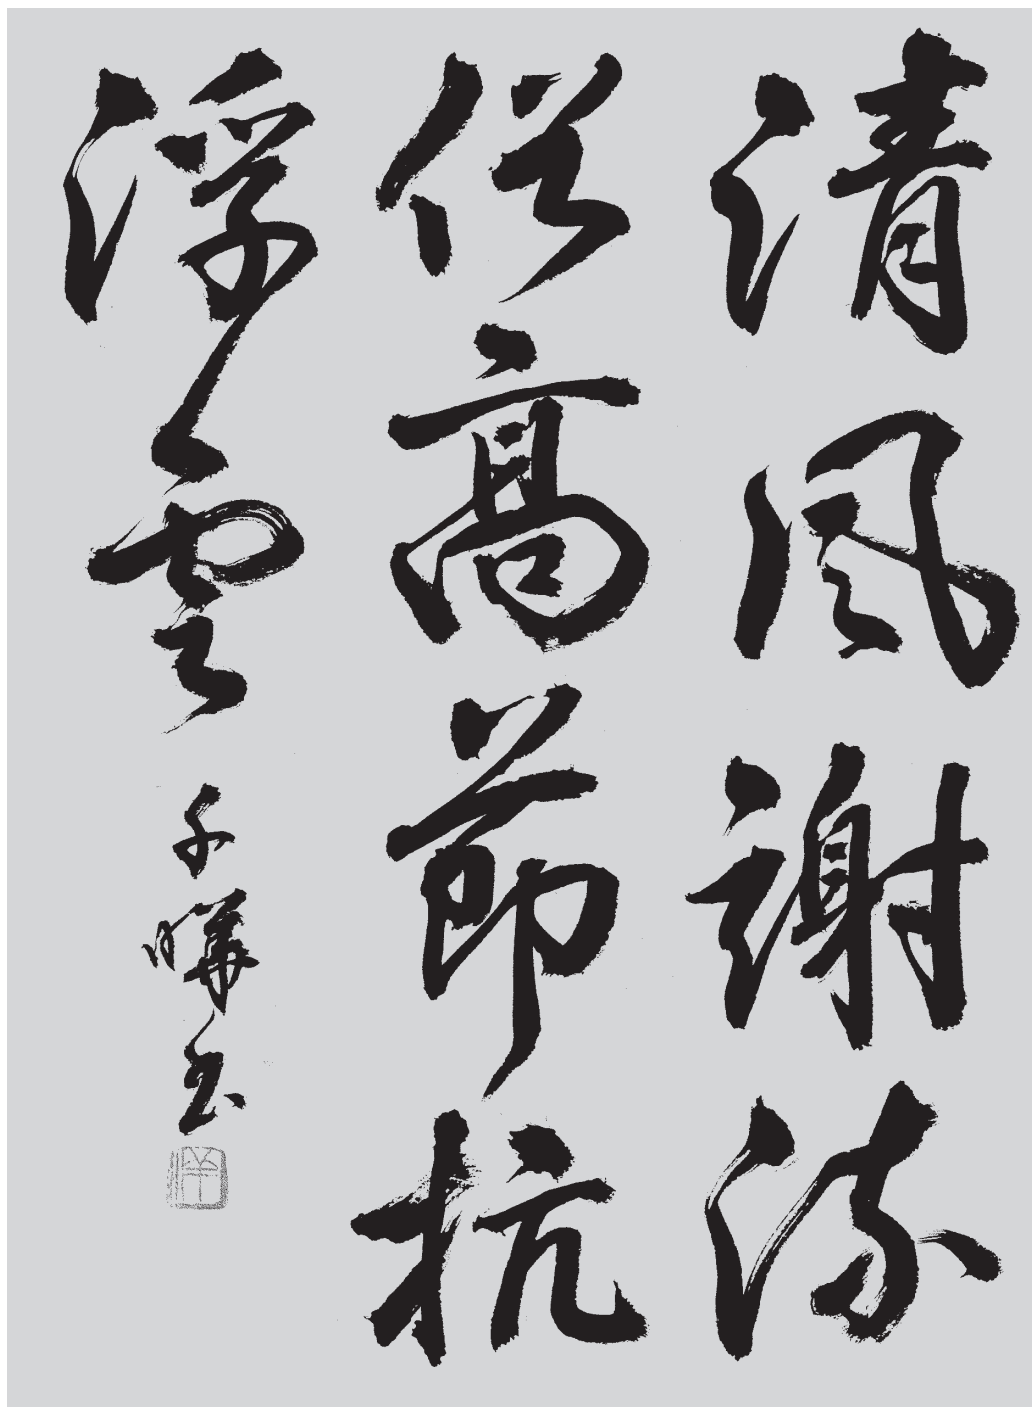 清風謝流
俗高節抗
浮雲
千曄